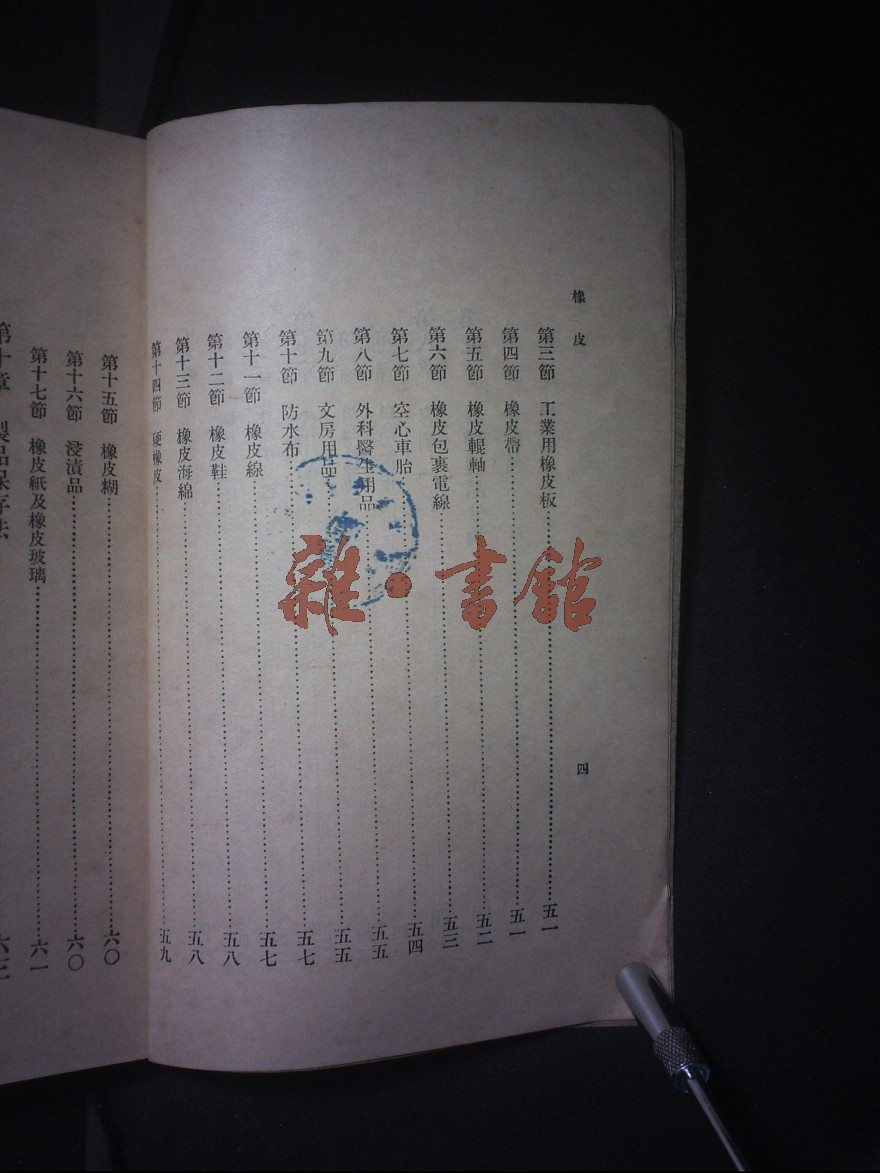 橡皮
四
第三節 工業用橡皮板……五一
第四節 橡皮帶……五一
第五節 橡皮輥軸……五二
第六節 橡皮包裹電線……五三
第七節 空心車胎……五四
第八節 外科醫生用品……五五
第九節 文房用品……五五
第十節 防水布……五七
第十一節 橡皮線……五七
第十二節 橡皮鞋……五八
第十三節 橡皮海綿……五八
第十四節 硬橡皮……五九
第十五節 橡皮糊……六〇
第十六節 浸漬品……六〇
第十七節 橡皮紙及橡皮玻璃……六一
第十章 製品保存法
雜·書館